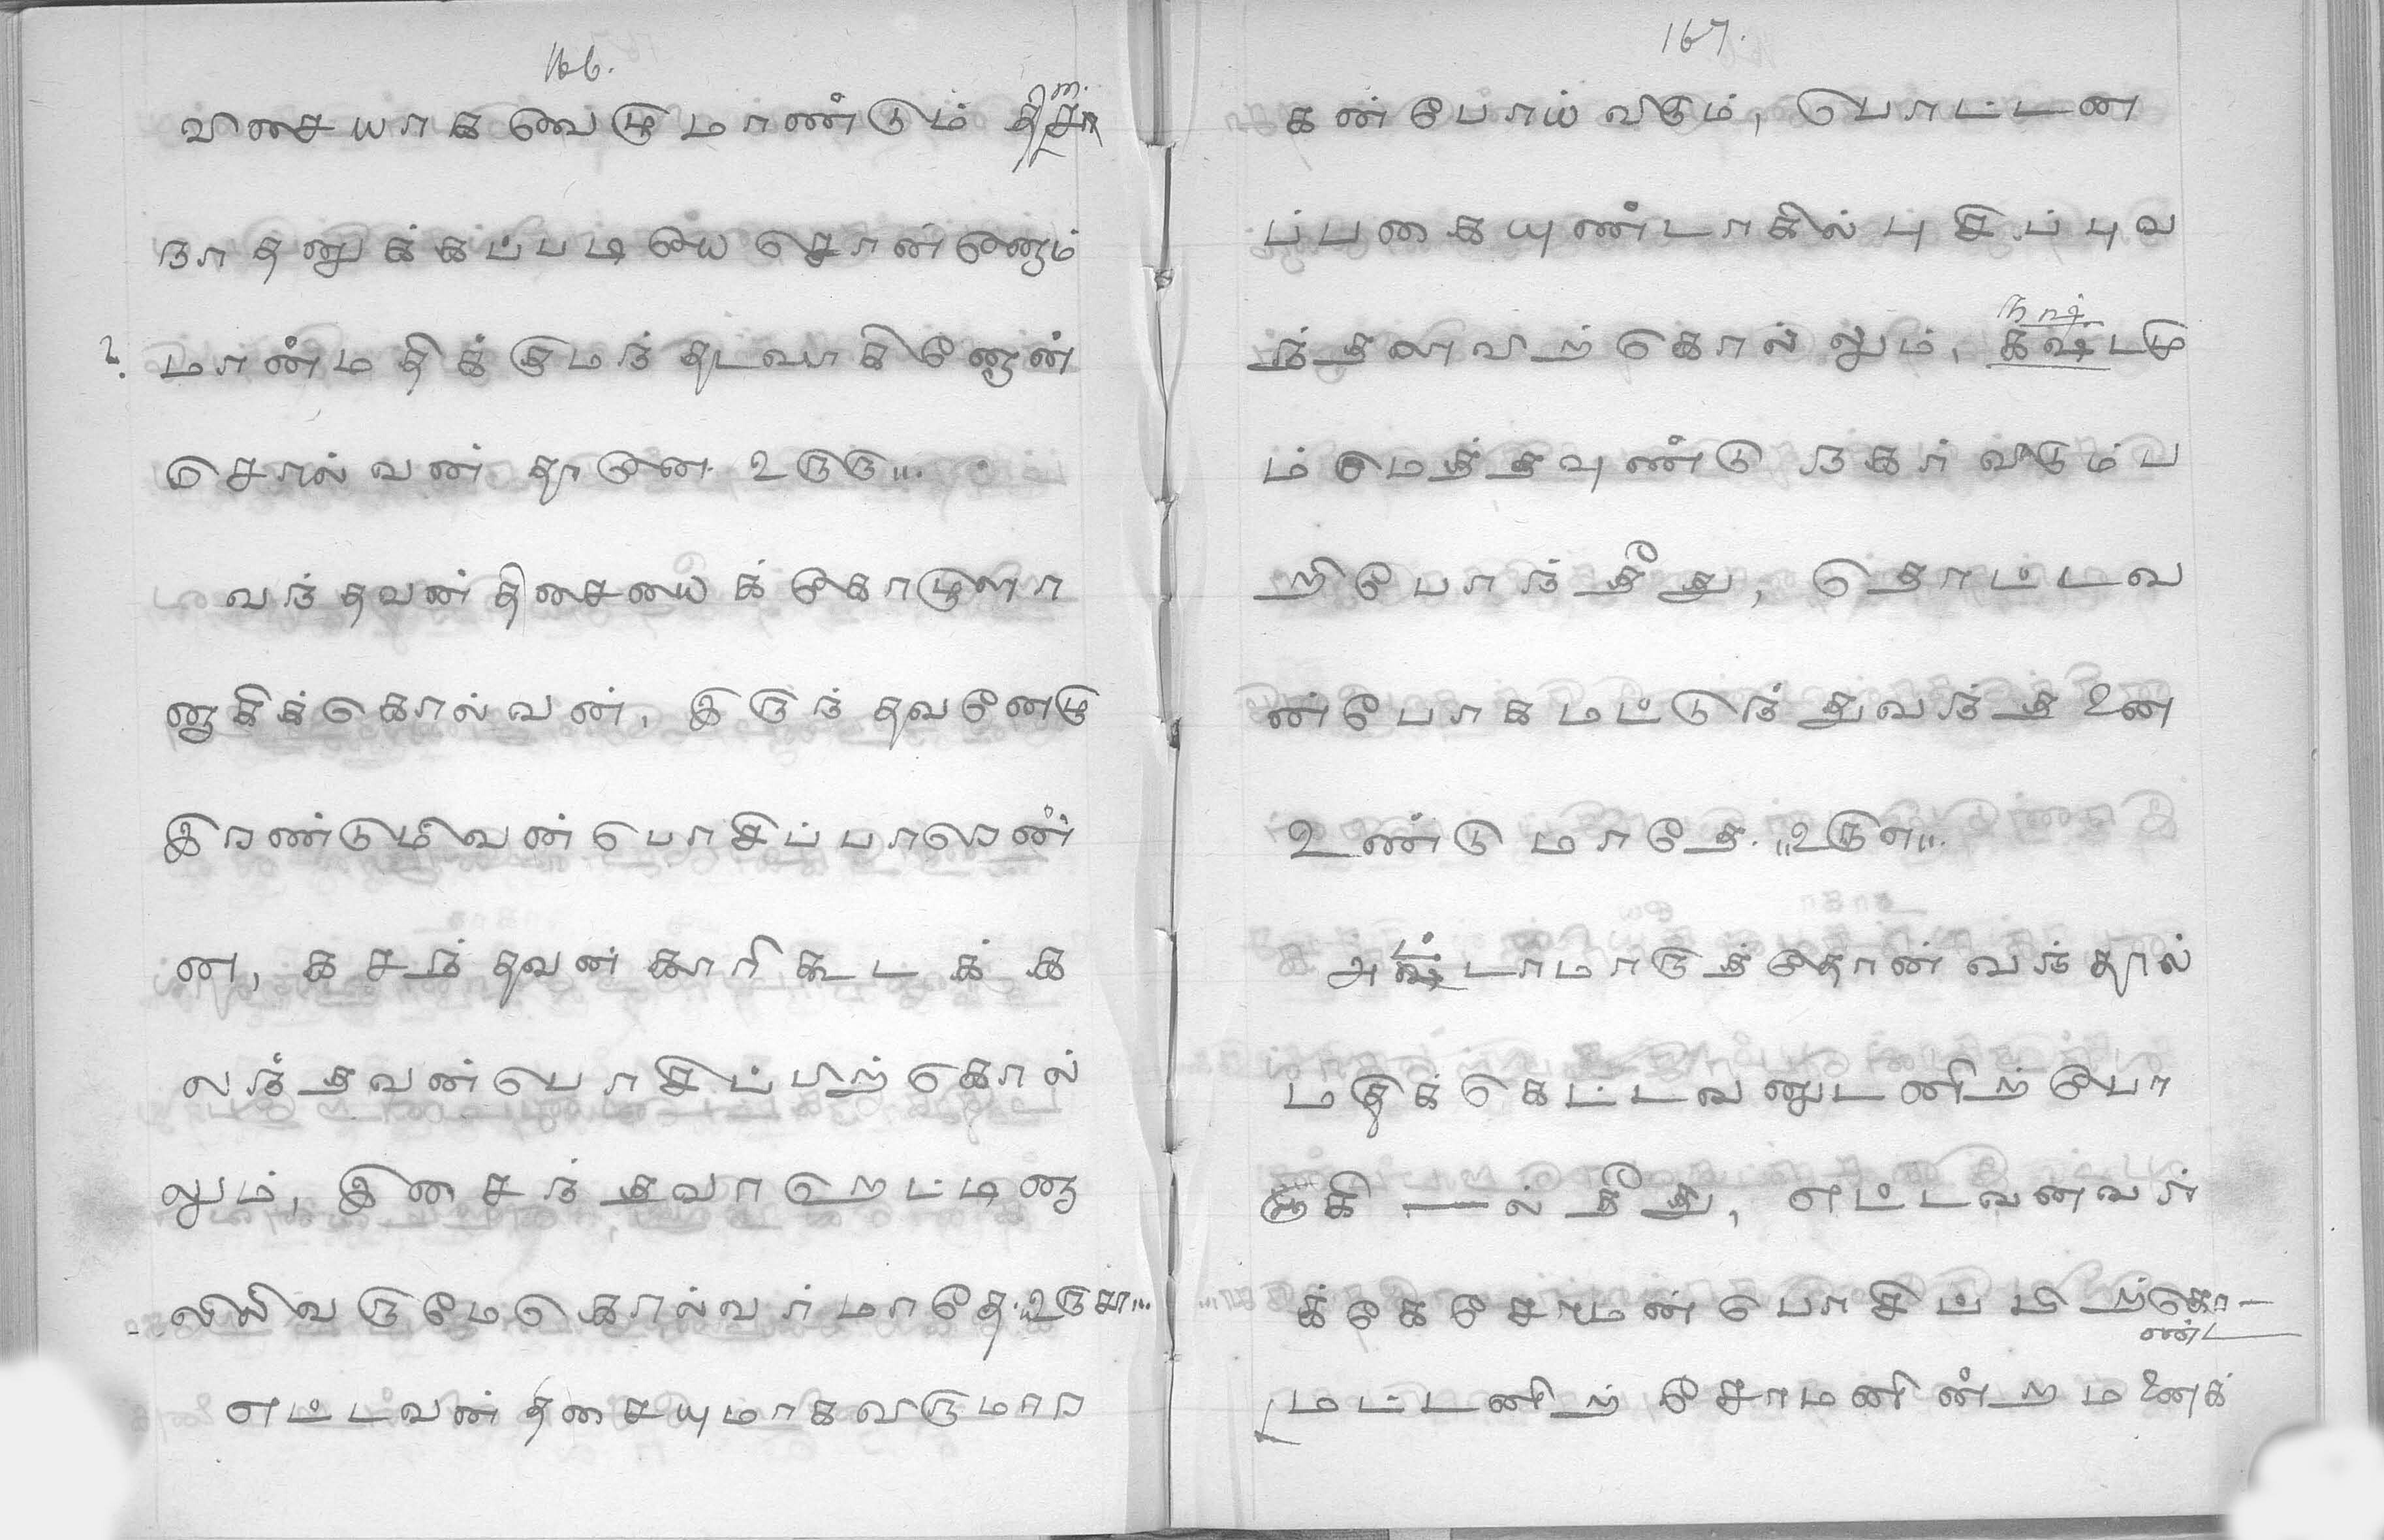 166.
விசையாகவெழுமாண்டும் திசா
நாதனுக்கப்படியே சொன்னேம்
மாண்மதிக்குமந் தடவாகினேன்
சொல்வன் தானே. உருரு„.
வந்தவன் திசையைக் கோழுளா
னாகிக்கொல்வன், இருந் தவனேழு
இரண்டுமிவன் பொசிப்பாரெண்
ண, கசந் தவன் காரி கூடக் க
லந்தவன்பொசிப்பிற்கொல்
லும், இசைந்தவாறெட்டினா
லிலிவருமேகொல்வர்மாதே. உருகா„
எட்டவன் திசையுமாகவிருமார
167.
கன்போய்விடும், பொட்டன
ப்பகையுண்டாகில் புசிப்புவ
ந்தளவிற்கொல்லும், கஷ்டமு
ம்மெத்தவுண்டு நகர்விடும்ப
றிபோந்தீது, தொட்டவ
ன்போகமட்டுந்துவந்தனை
உண்டு மாதே. „உருள„.
அஷ்டாமாருத்தோன்வந்தால்
மதிக்கெட்டவனுடனிற்போ
ருகி —ல் தீது, எட்டவனவர்
க்கேசோமன் பொசிப்பிற்கொ-
ண்ட
மட்டனிற் சோமனின்றமனைக்